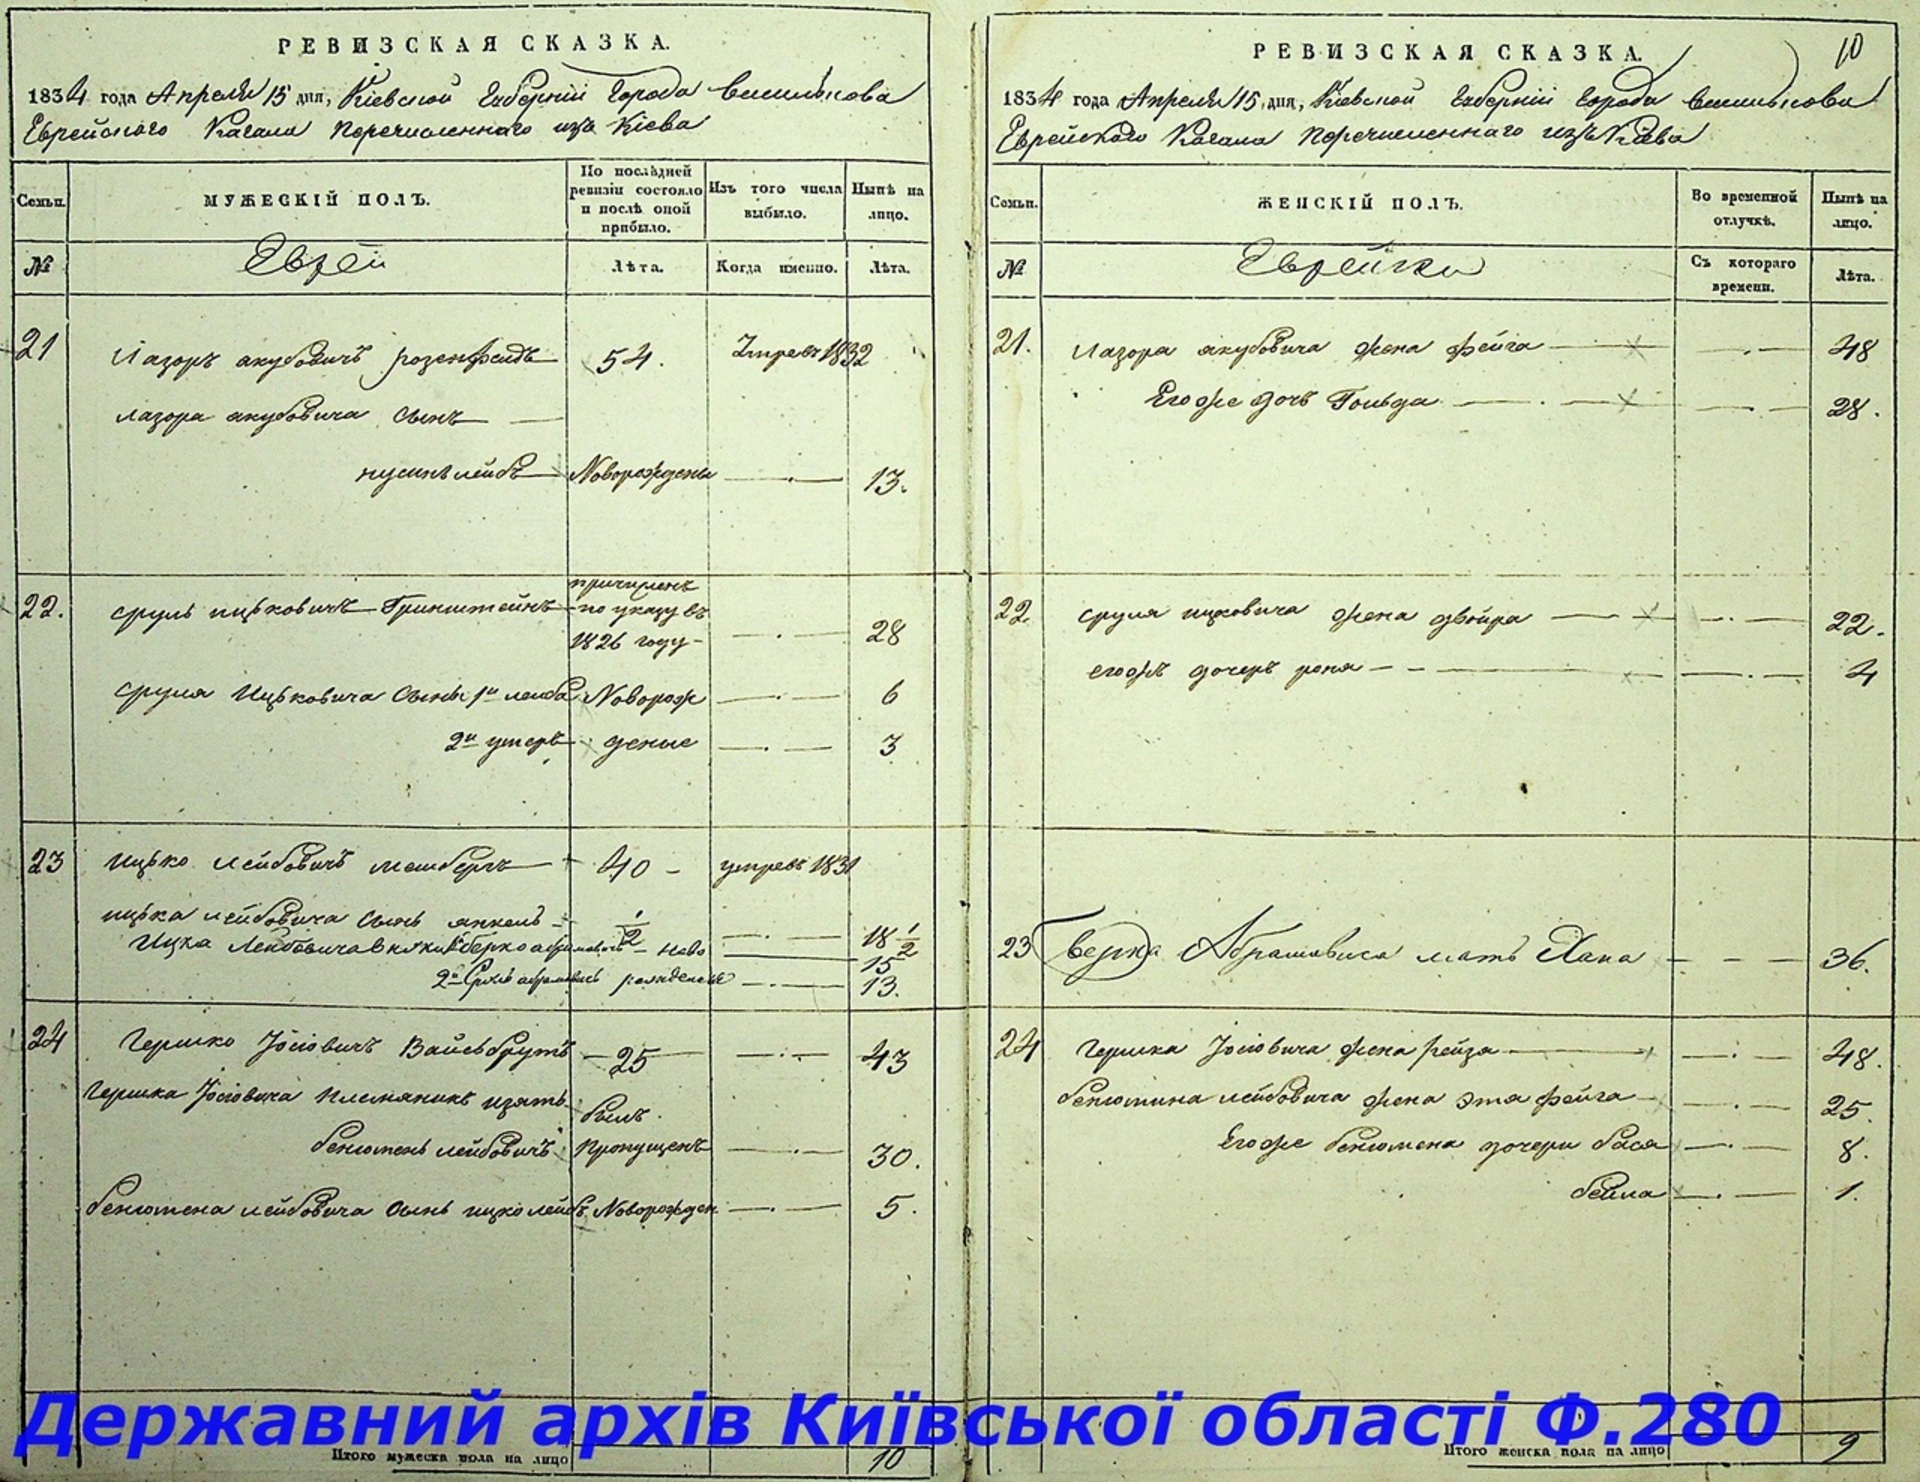 РЕВИЗСКАЯ СКАЗКА.
1834 года Апреля 15 дня, Кіевской Губерніи Города Василькова
Еврейского Кагала Перечисленнаго изъ Кіева
Семьи. МУЖЕСКІЙ ПОЛЪ. По послѣдней ревизіи состояло и послѣ оной прибыло. Изъ того числа выбыло. Нынѣ на лицо.
№ Евреи Лѣта. Когда именно. Лѣта.
21 Лазоръ Якубовичъ Розенфелдъ 54. Умреъ 1832
Лазора Якубовича Сынъ
Нусинъ лейбъ Новорожденъ 13.
22. Сруль Ицьковичъ Гринштейнъ причисленъ по указу въ 1826 году 28
Сруля Ицьковича Сыны 1й лейба Новорож 6
2й дение 3
23 Ицько Лейбовичъ 40 умреъ 1831
Ицька Лейбовича Сынъ Янкель 1/2 18 1/2
Ицка Лейбовича Внуки 1й берко Абрамовичъ ново 15
2й Абрамовичъ рожденые 13.
24 Гершко Іосіовичъ Вайсбрутъ 25 43
Гершка Іосіовича Племяникъ былъ
бенюмень лейбовичъ Пропущенъ 30.
бенюмена лейбовича Сынъ ицко лейбъ Новорожден 5.
Итого мужеска пола на лицо 10
РЕВИЗСКАЯ СКАЗКА. 10
1834 года Апреля 15 дня, Кіевской Губерніи Города Василькова
Еврейского Кагала Перечисленнаго изъ Кіева
Семьи. ЖЕНСКІЙ ПОЛЪ. Во временной отлучкѣ. Нынѣ на лицо.
№ Еврейки Съ котораго времени. Лѣта.
21. Лазора Якубовича жена фейга 48
Его же дочъ Гольда 28.
22. Сруля ицковича жена двойра 22.
его жъ дочеръ 4
23 берка Абрамовича мать Хана 36.
24 Гершка Іосіовича жена рейза 48.
бенюмина лейбовича жена Эта фейга 25.
Его же бенюмена дочери бася 8.
бейла 1.
Итого женска пола на лицо 9
Державний архів Київської області Ф.280